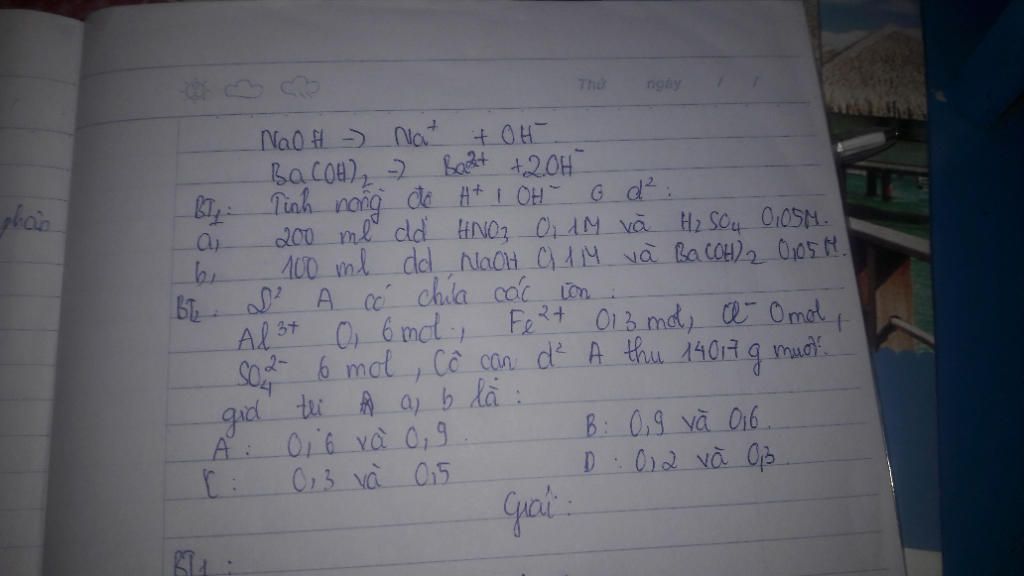 Thứ ngày / /
NaOH → Na⁺ + OH⁻
Ba(OH)₂ → Ba²⁺ + 2OH⁻
phân
BT₁: Tính nồng độ H⁺, OH⁻ ở d²:
a, 200 ml dd HNO₃ 0,1M và H₂SO₄ 0,05M.
b, 100 ml dd NaOH 0,1M và Ba(OH)₂ 0,05M.
BT₂: D² A có chứa các ion:
Al³⁺ 0,6 mol, Fe²⁺ 0,3 mol, Cl⁻ a mol,
SO₄²⁻ b mol, Cô cạn d² A thu 140,7 g muối.
giá trị a, b là:
A: 0,6 và 0,9.
B: 0,9 và 0,6.
C: 0,3 và 0,5
D: 0,2 và 0,3
Giải:
BT1: